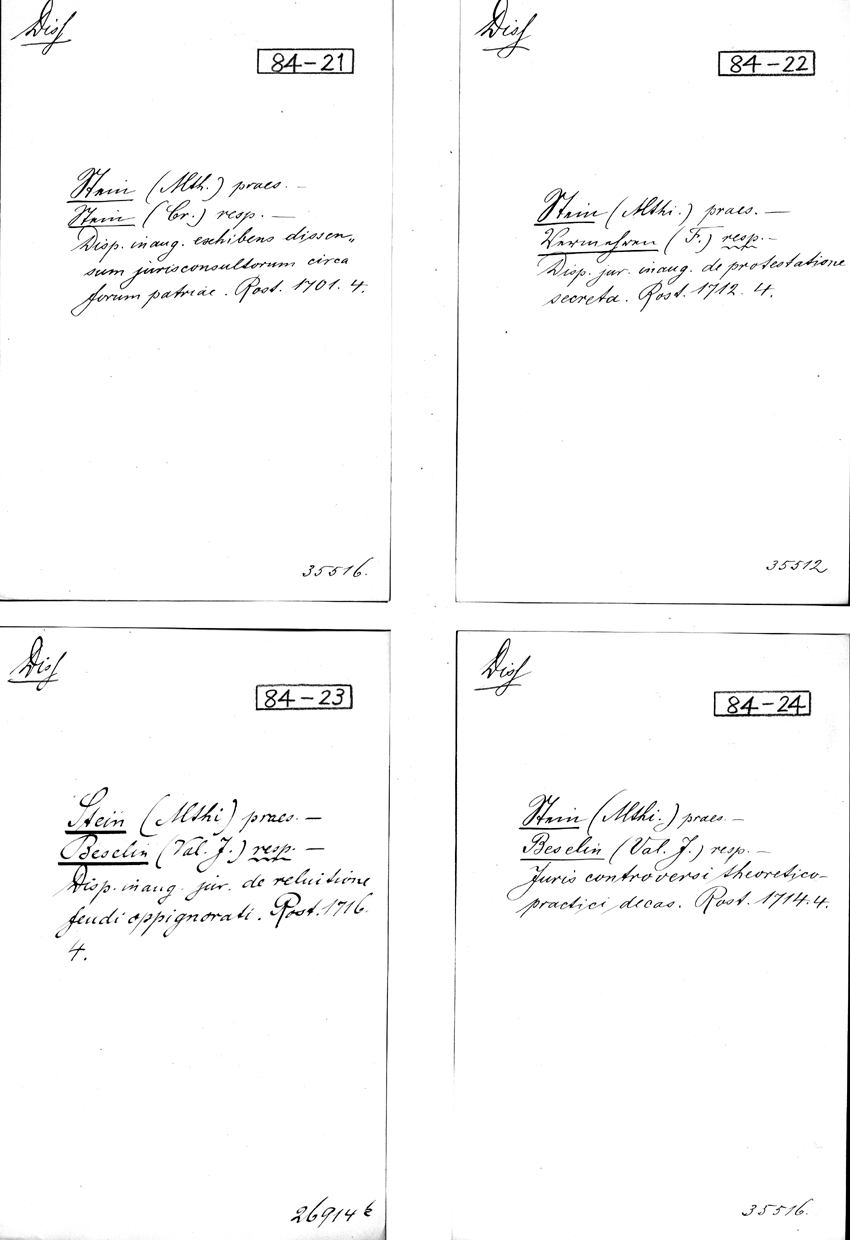 Diss
84-21
Stein (Mth.) praes. —
Stein (Cr.) resp. —
Disp. inaug. exhibens dissen„
sum jurisconsultorum circa
forum patriae. Rost. 1701. 4.
35516.
Diss
84-22
Stein (Mthi.) praes. —
Vermehren (F.) resp. —
Disp. jur. inaug. de protestatione
secreta. Rost. 1712. 4.
35512
Diss
84-23
Stein (Mthi) praes. —
Beselin (Val. J.) resp. —
Disp. inaug. jur. de reluitione
feudi oppignorati. Rost. 1716.
4.
26914
Diss
84-24
Stein (Mthi.) praes. —
Beselin (Val. J.) resp. —
Juris controversi theoretico-
practici decas. Rost. 1714. 4.
35516.